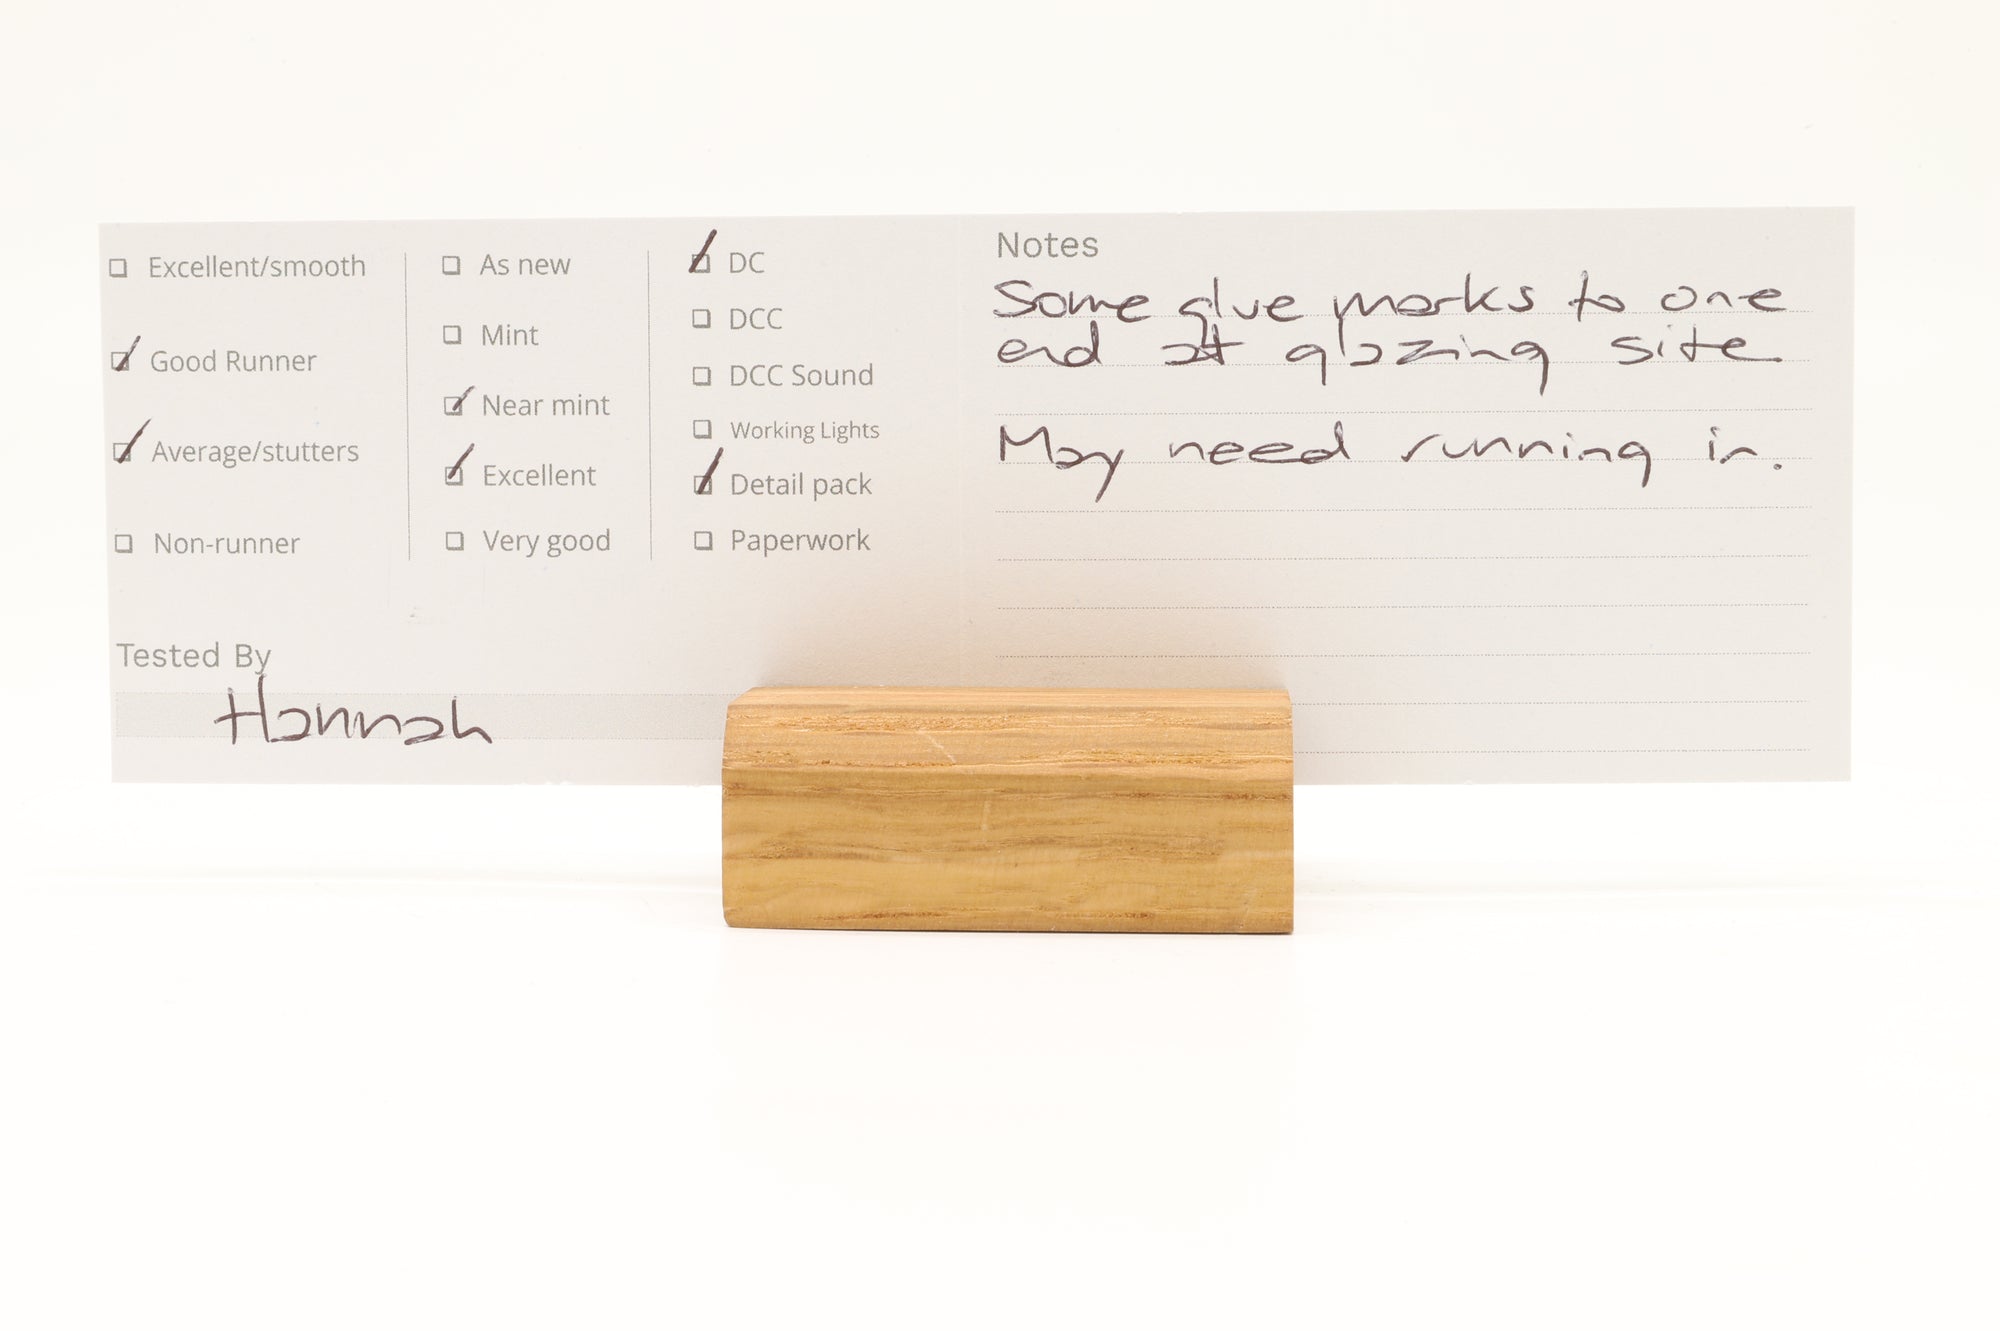 Excellent/smooth
Good Runner
Average/stutters
Non-runner
As new
Mint
Near mint
Excellent
Very good
DC
DCC
DCC Sound
Working Lights
Detail pack
Paperwork
Tested By
Hannah
Notes
Some glue marks to one
end at glazing site
May need running in.